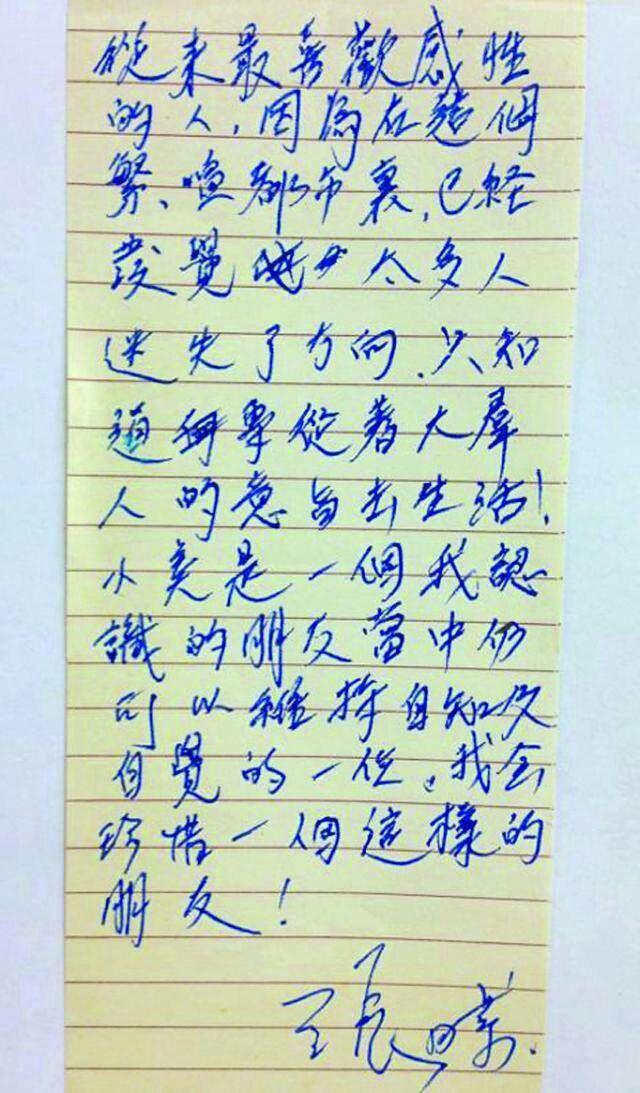 從來最喜歡感性
的人，因為在這個
繁喧都市裏，已經
發覺 太多人
迷失了方向，只知
道 從著大羣
人的意旨去生活！
小 是一個我認
識的朋友當中仍
可以維持自知及
自覺的一位，我會
珍惜一個這樣的
朋友！